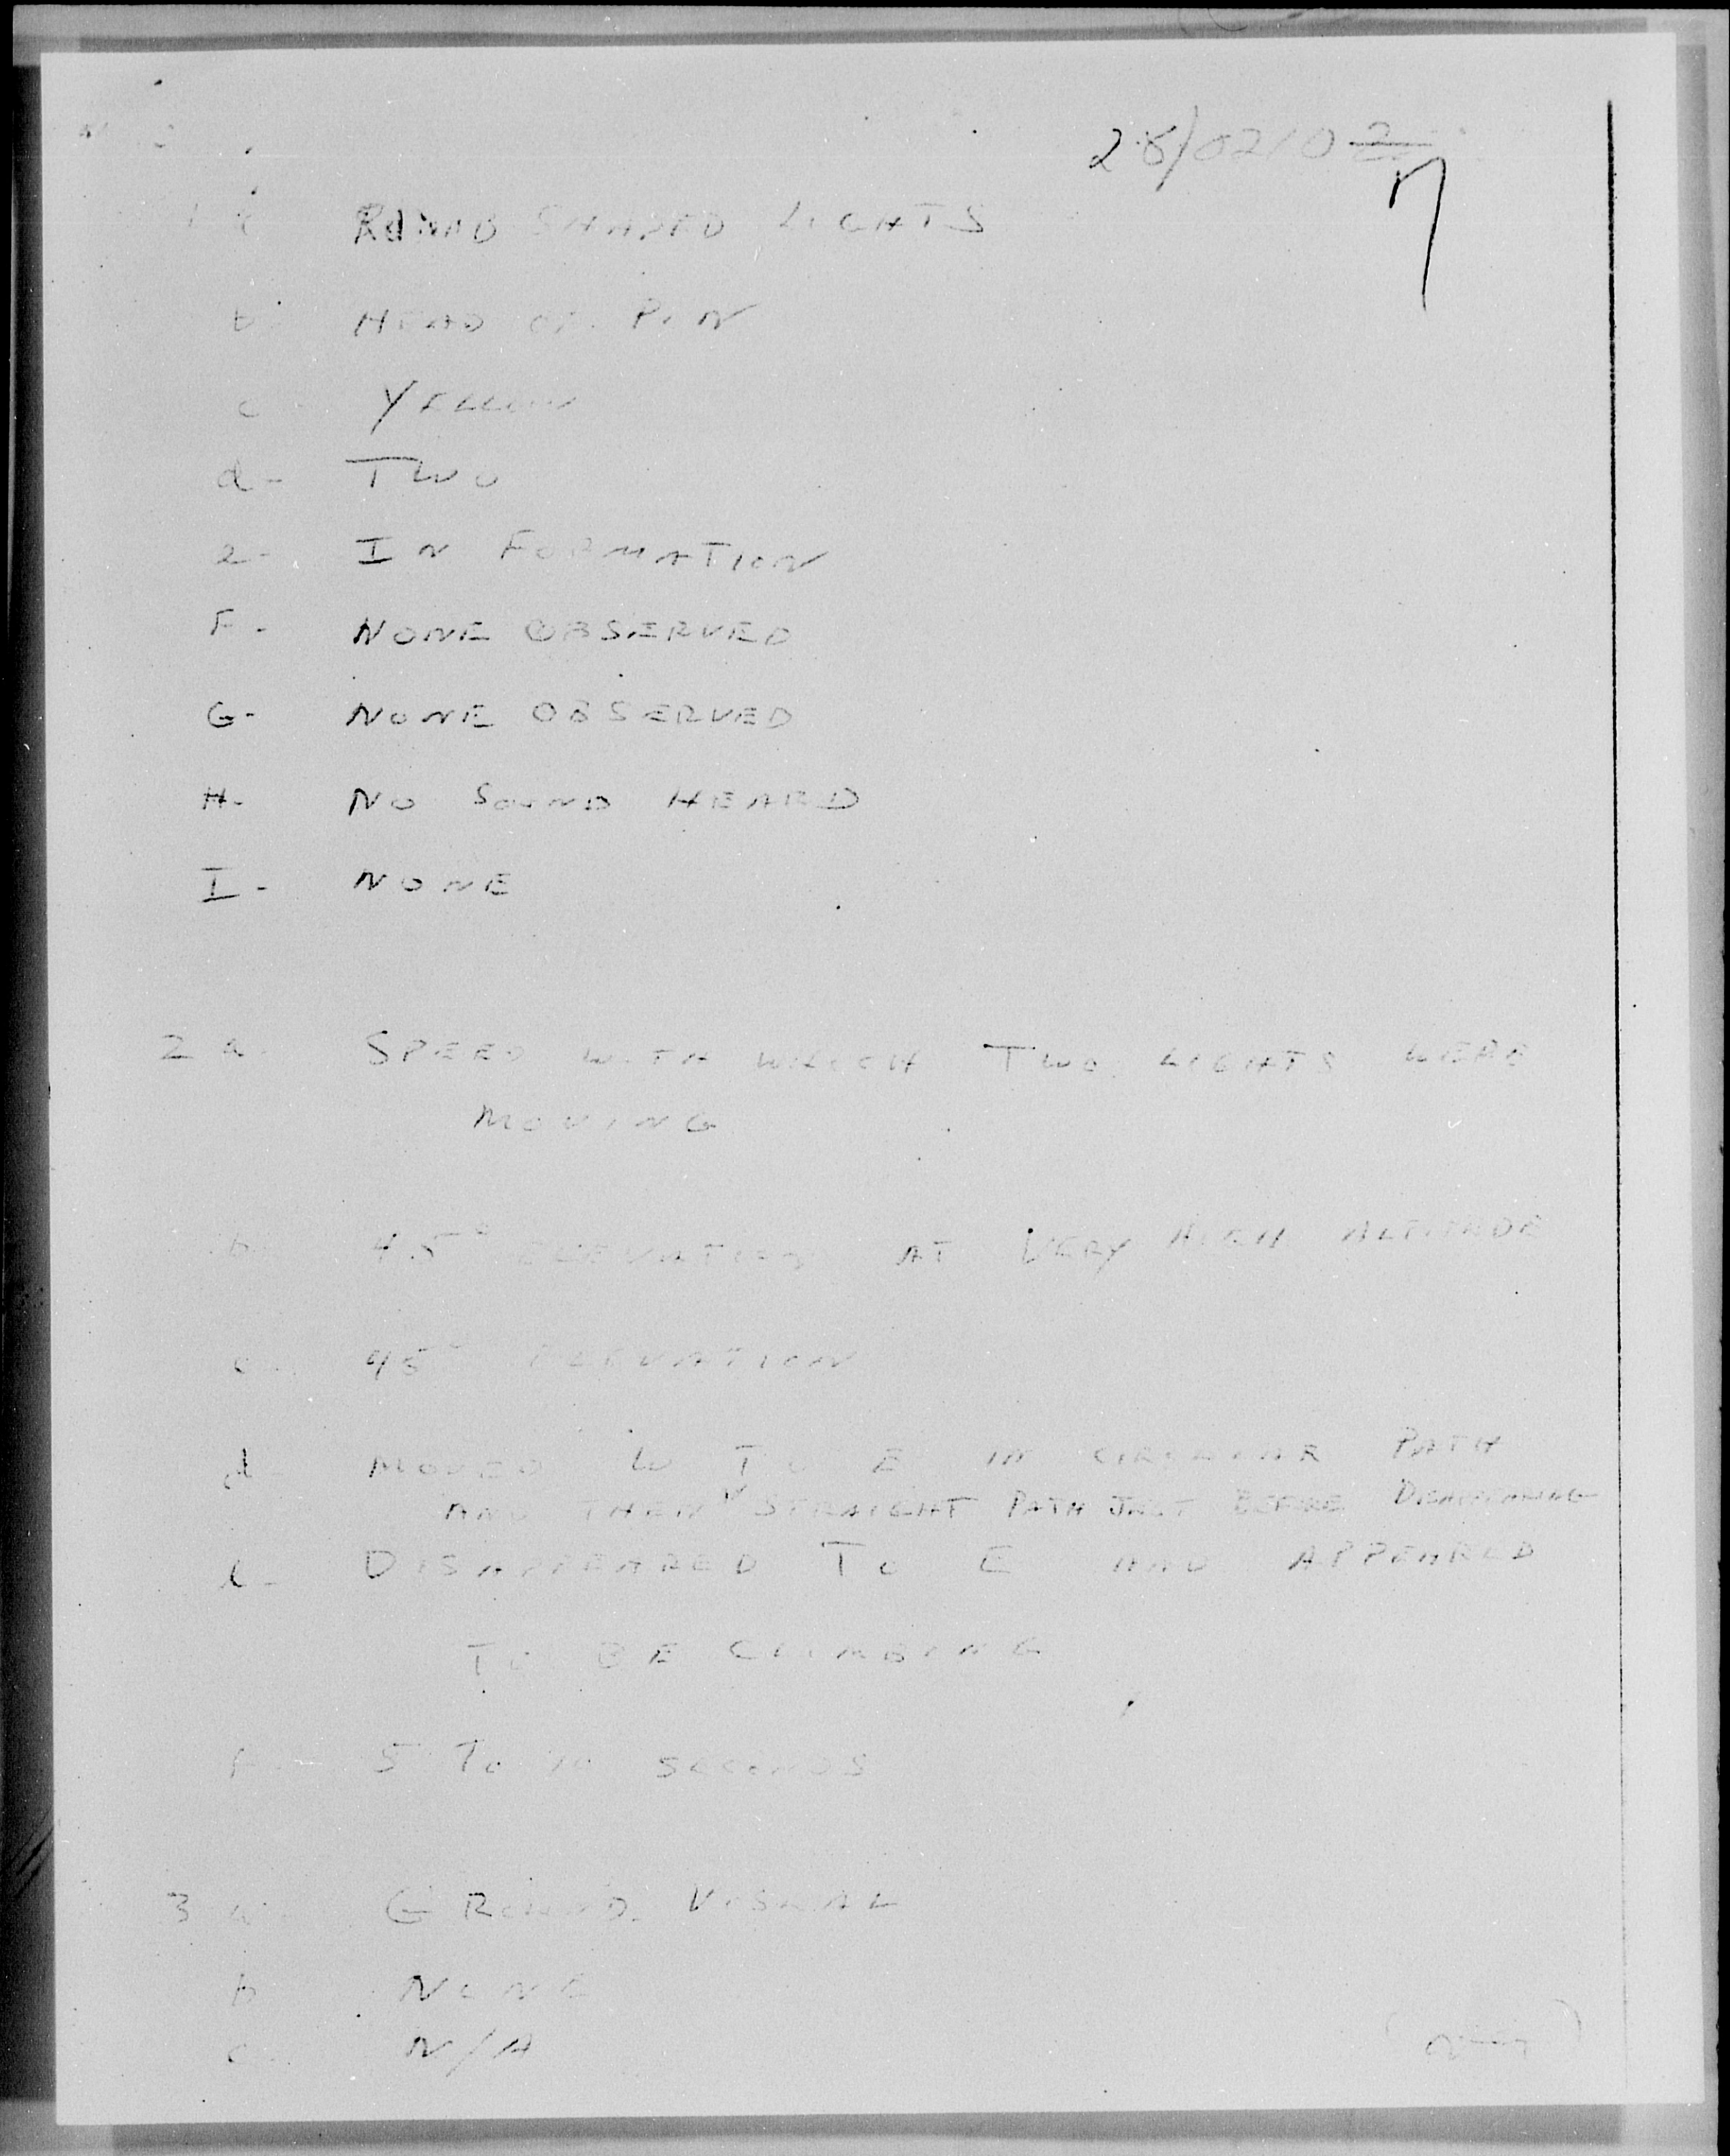 28/0210Z
1 a ROUND SHAPED LIGHTS
b HEAD OF PIN
c YELLOW
d- TWO
e- IN FORMATION
F- NONE OBSERVED
G- NONE OBSERVED
H- NO SOUND HEARD
I- NONE
2 a. SPEED WITH WHICH TWO LIGHTS WERE
MOVING
b 45° ELEVATION AT VERY HIGH ALTITUDE
c 45° ELEVATION
d MOVED W TO E IN CIRCULAR PATH
AND THEN STRAIGHT PATH JUST BEFORE DISAPPEARING
e- DISAPPEARED TO E AND APPEARED
TO BE CLIMBING
f 5 TO 10 SECONDS
3 a- GROUND VISUAL
b NONE
c. N/A